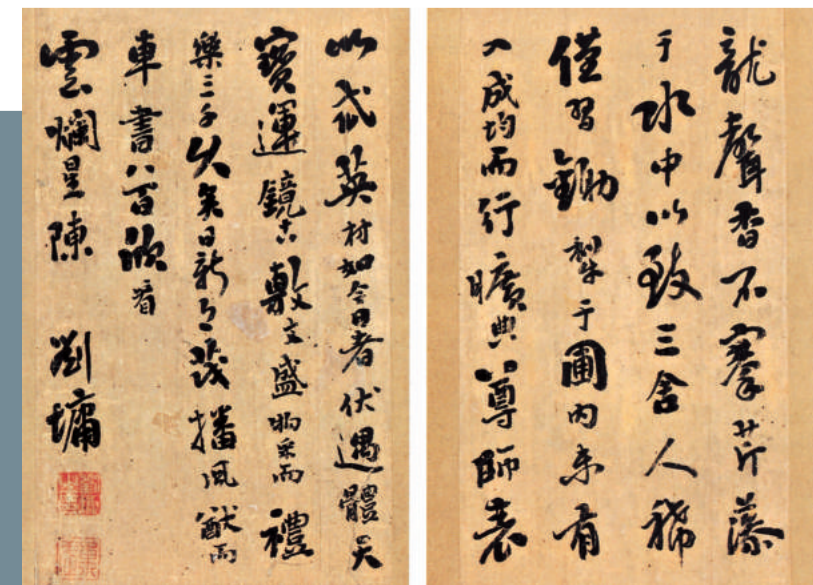 龍聲香不搴芹藻
于水中以致三舍人稀
僅習鋤犁于圃內未有
入成均而行曠典尊師表
以氐英材如今日者伏遇體天
寶運鏡古敷文盛昭采而禮
樂三千久矣日新月茂播風猷而
車書八百欣看
雲爛星陳 劉墉